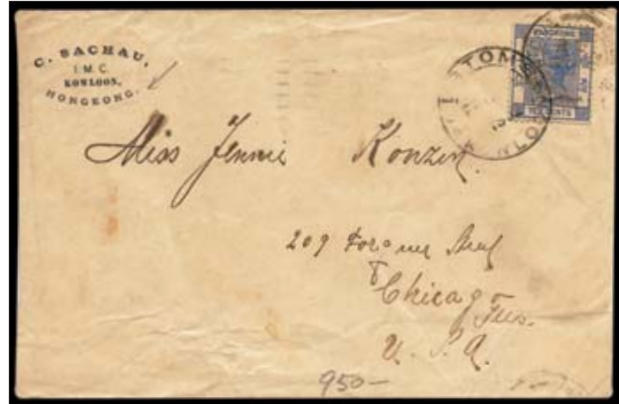 C. SACHAU,
I.M.C.
KOWLOON,
HONGKONG.
HONGKONG
TEN CENTS
Miss Jennie Konzen.
209
Chicago
U. S. A.
950—